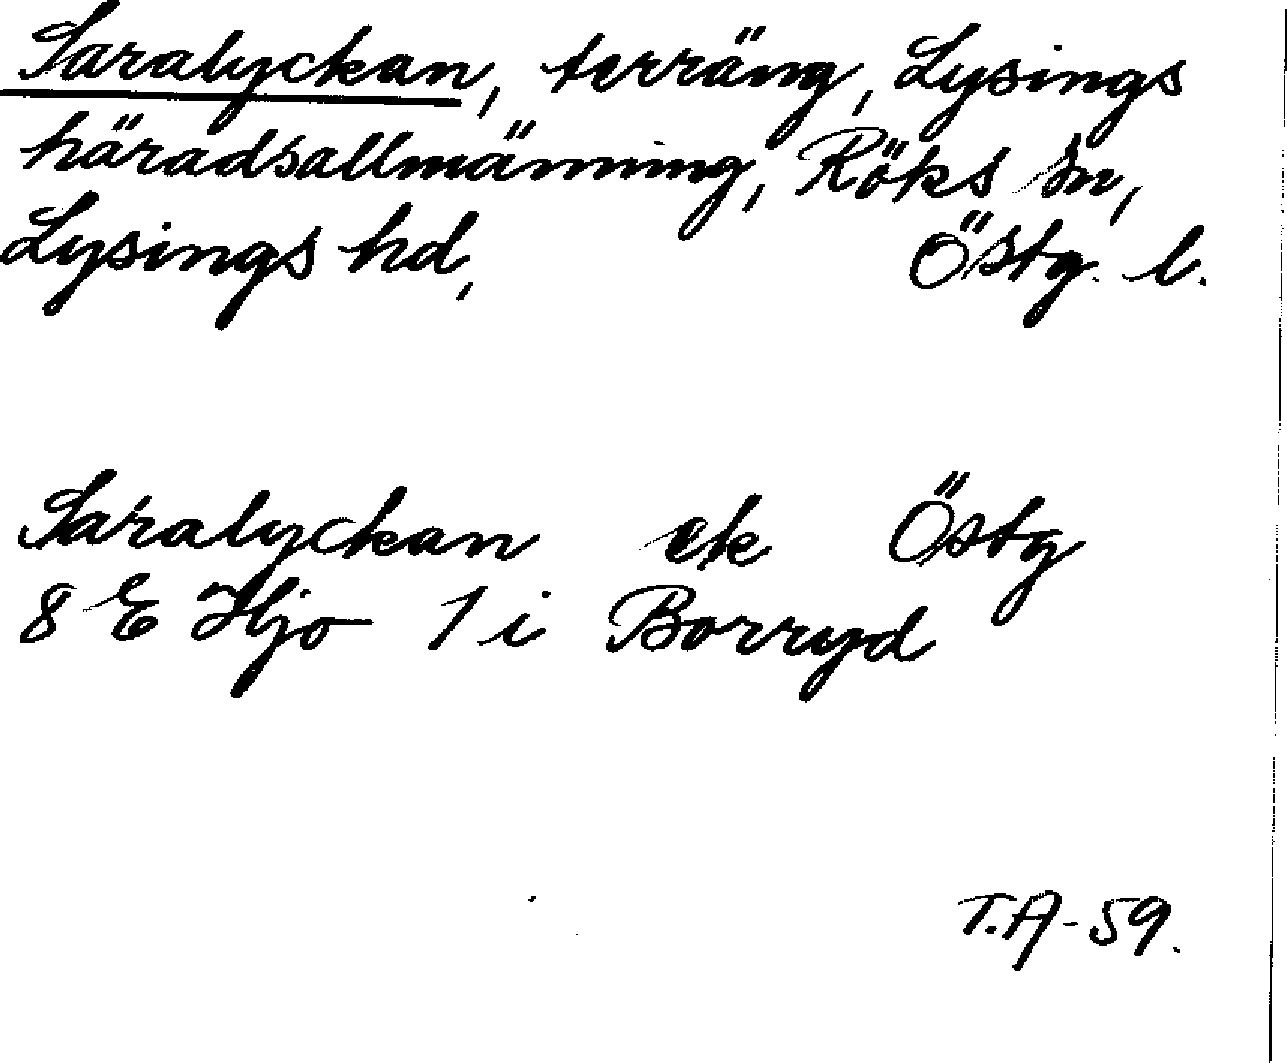 Saralyckan, terräng, Lysings
häradsallmänning, Röks sn,
Lysings hd, Östg. l.
Saralyckan ek Östg
8 E Hjo 1 i Borryd
T.A-59.